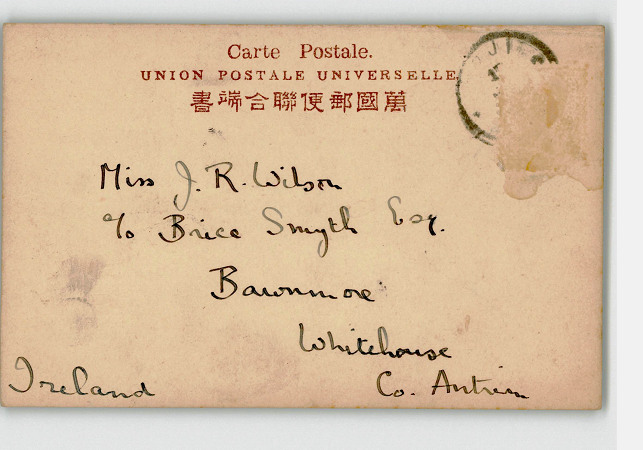 Carte Postale.
UNION POSTALE UNIVERSELLE
書端合聯便郵國萬
Miss J. R. Wilson
c/o Brice Smyth Esq.
Bawnmore
Whitehouse
Co. Antrim
Ireland